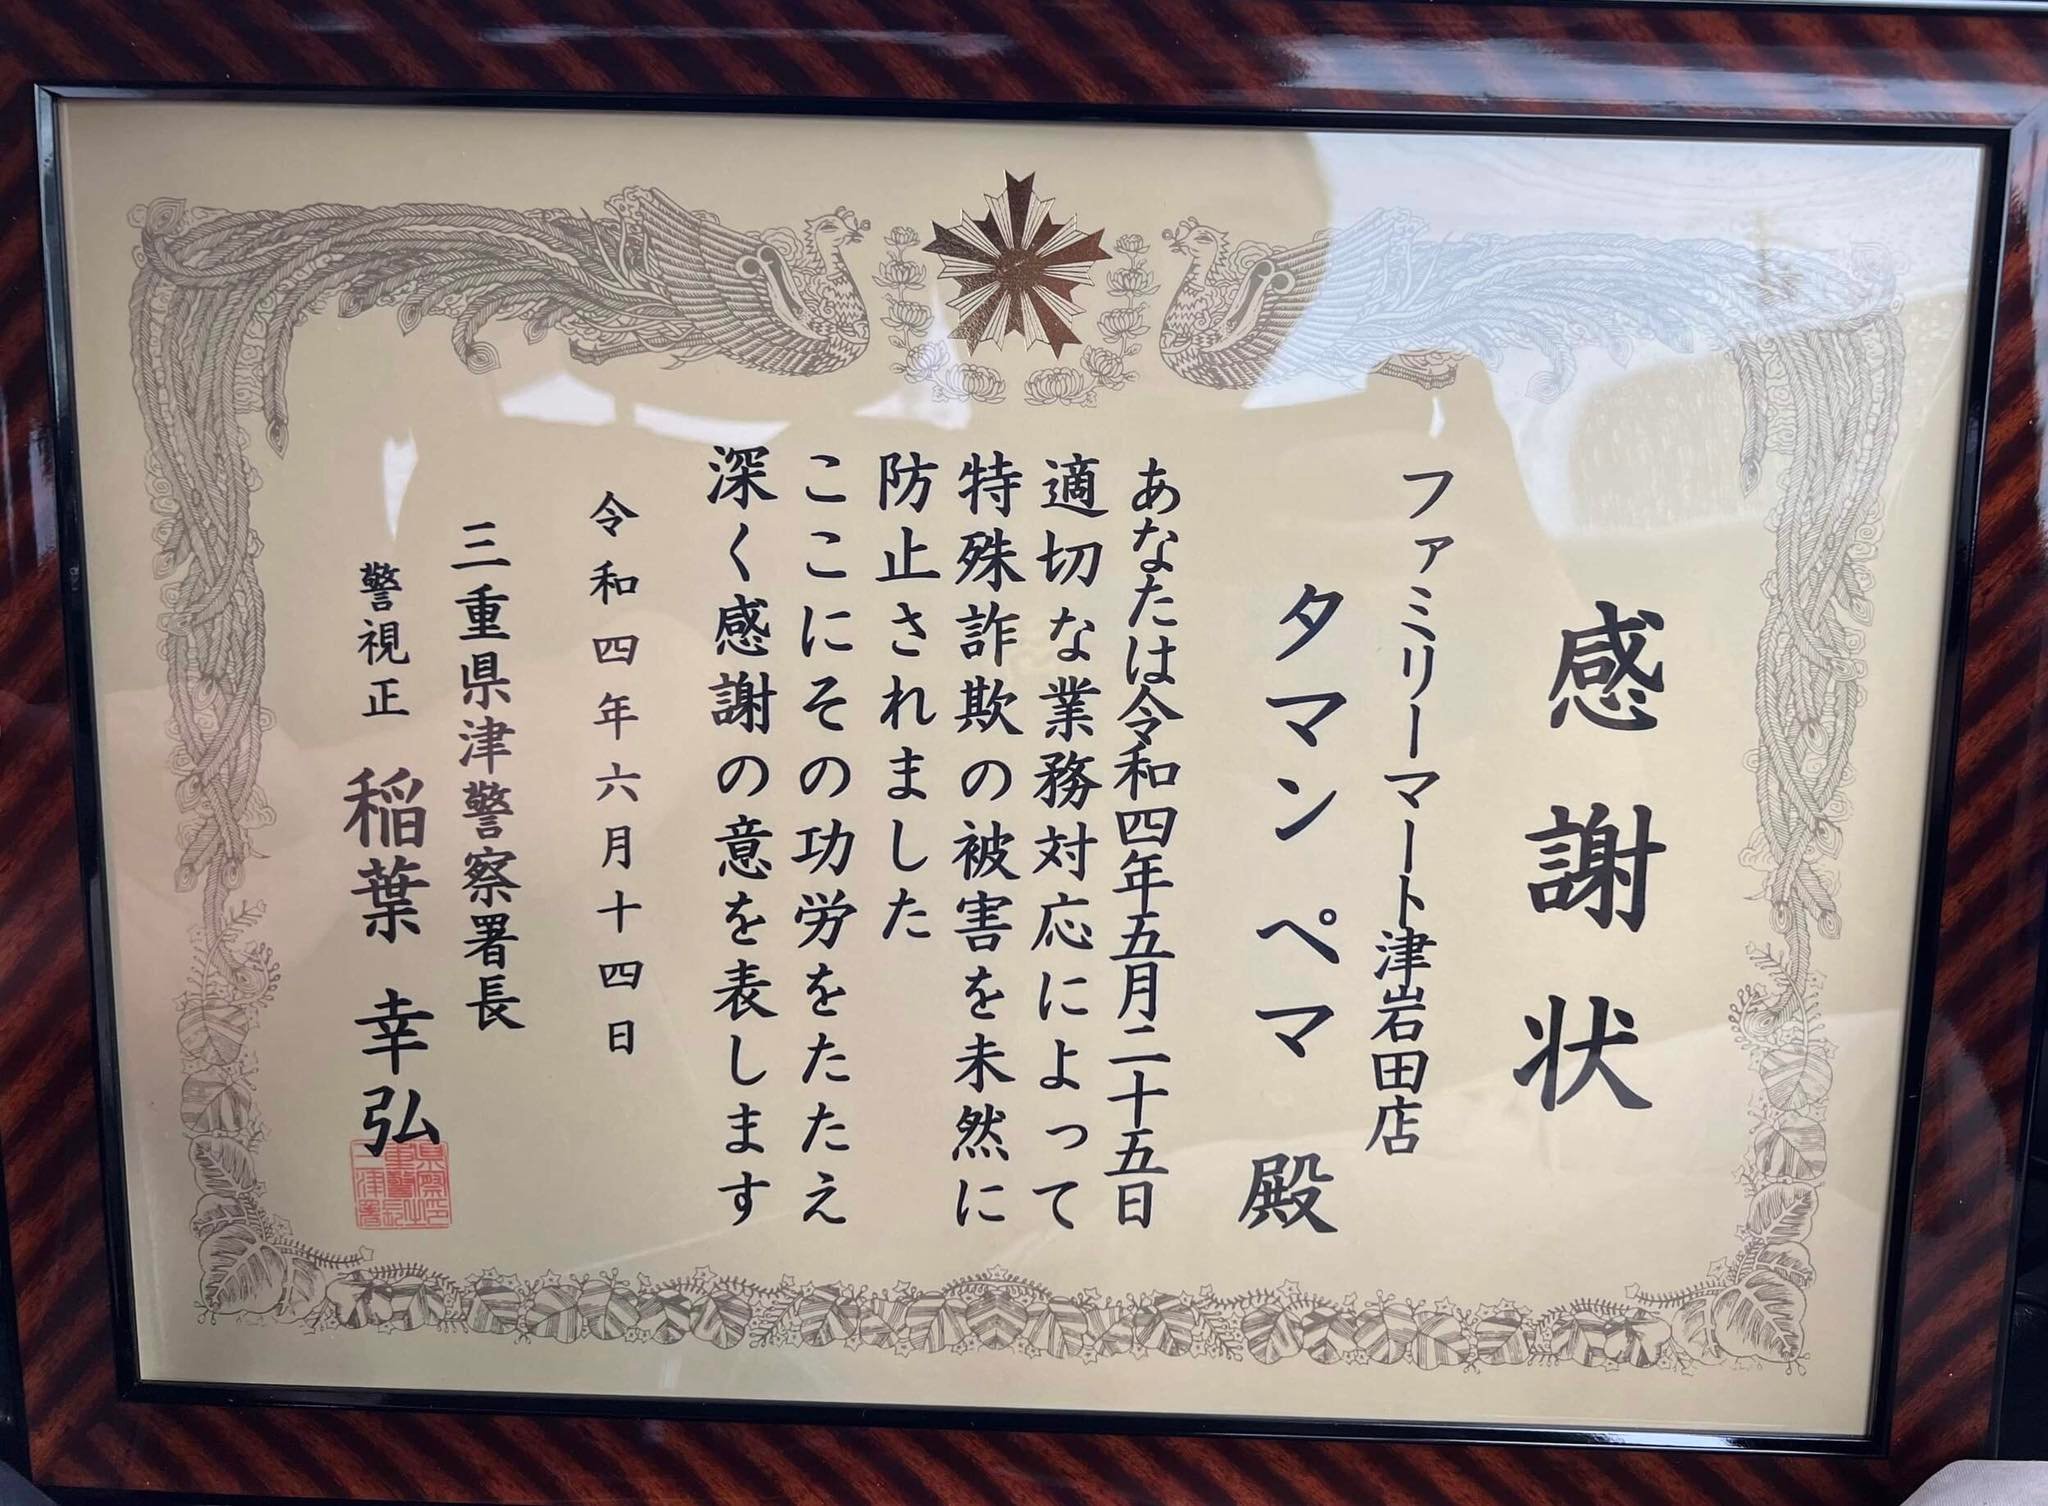 感謝状
ファミリーマート津岩田店
タマンペマ 殿
あなたは令和四年五月二十五日
適切な業務対応によって
特殊詐欺の被害を未然に
防止されました
ここにその功労をたたえ
深く感謝の意を表します
令和四年六月十四日
三重県津警察署長
警視正 稲葉 幸弘